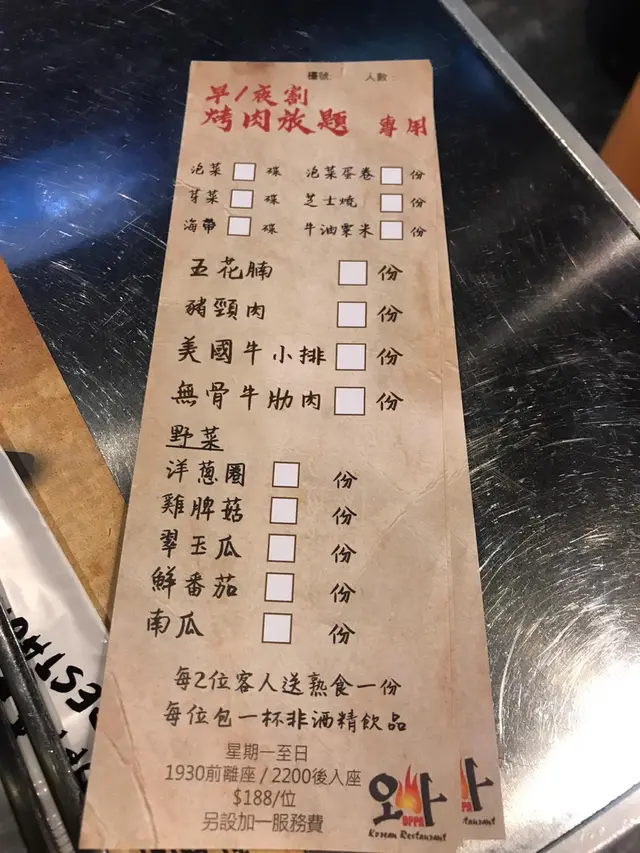 檯號: 人數:
早/夜割
烤肉放題 專用
泡菜 碟 泡菜蛋卷 份
芽菜 碟 芝士燒 份
海帶 碟 牛油粟米 份
五花腩 份
豬頸肉 份
美國牛小排 份
無骨牛肋肉 份
野菜
洋蔥圈 份
雞脾菇 份
翠玉瓜 份
鮮番茄 份
南瓜 份
每2位客人送熟食一份
每位包一杯非酒精飲品
星期一至日
1930前離座/2200後入座
$188/位
另設加一服務費
오빠
OPPA
Korean Restaurant
PA
staurant
ESTAU